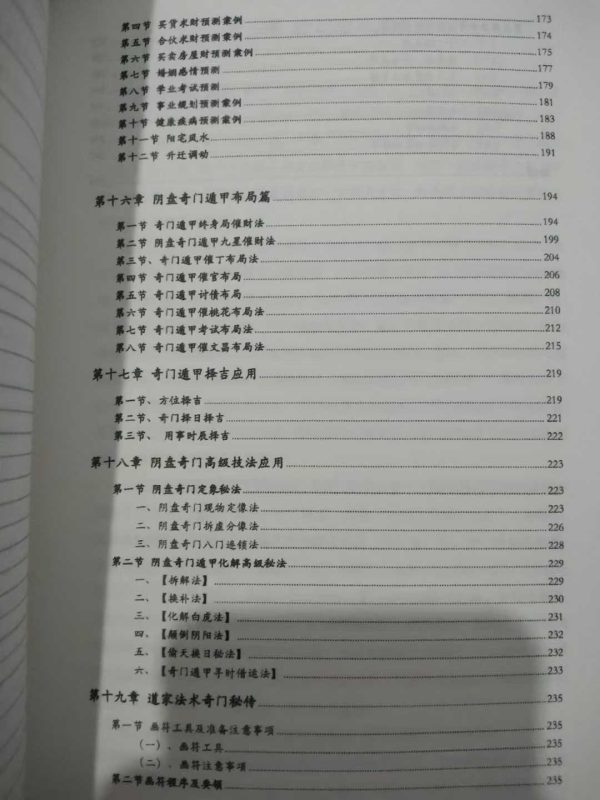 第四节 买货求财预测案例 173
第五节 合伙求财预测案例 174
第六节 买卖房屋财预测案例 175
第七节 婚姻感情预测 177
第八节 学业考试预测 179
第九节 事业规划预测案例 181
第十节 健康疾病预测案例 183
第十一节 阳宅风水 188
第十二节 升迁调动 191
第十六章 阴盘奇门遁甲布局篇 194
第一节 奇门遁甲终身局催财法 194
第二节 阴盘奇门遁甲九星催财法 199
第三节、奇门遁甲催丁布局法 204
第四节 奇门遁甲催官布局 206
第五节 奇门遁甲讨债布局 208
第六节 奇门遁甲催桃花布局法 210
第七节 奇门遁甲考试布局法 212
第八节 奇门遁甲催文昌布局法 215
第十七章 奇门遁甲择吉应用 219
第一节、方位择吉 219
第二节、奇门择日择吉 221
第三节、 用事时辰择吉 222
第十八章 阴盘奇门高级技法应用 223
第一节 阴盘奇门定象秘法 223
一、阴盘奇门观物定像法 223
二、阴盘奇门拆虚分像法 226
三、阴盘奇门八门连锁法 228
第二节 阴盘奇门遁甲化解高级秘法 229
一、【拆解法】 229
二、【换补法】 230
三、【化解白虎法】 231
四、【颠倒阴阳法】 232
五、【偷天换日秘法】 232
六、【奇门遁甲寻时借运法】 233
第十九章 道家法术奇门秘传 235
第一节 画符工具及准备注意事项 235
（一）、画符工具 235
（二）、画符注意事项 235
第二节画符程序及要领 235